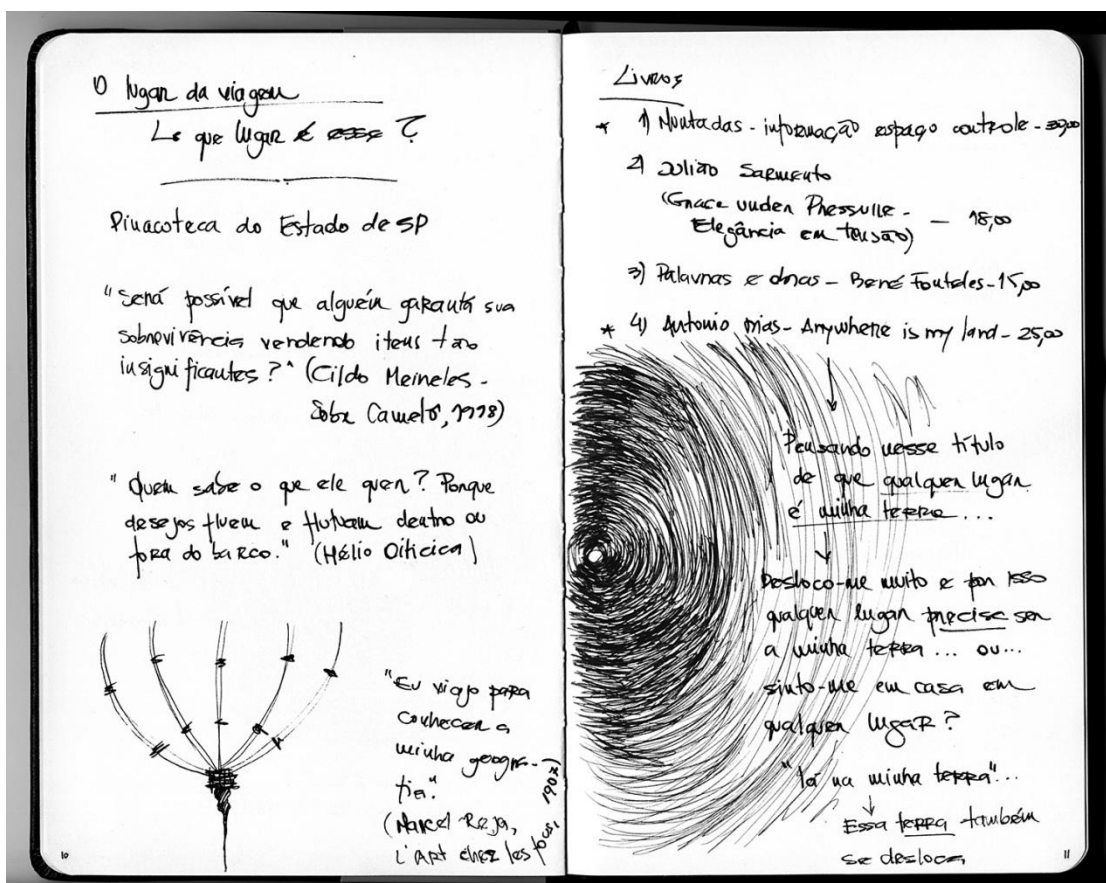 O lugar da viagem
↳ que lugar é esse?
Pinacoteca do Estado de SP
"Será possível que alguém garanta sua
sobrevivência vendendo itens tão
insignificantes?" (Cildo Meireles -
Sobre Camelô, 1998)
"Quem sabe o que ele quer? Porque
desejos fluem e flutuam dentro ou
fora do barco." (Hélio Oiticica)
"Eu viajo para
conhecer a
minha geogra-
fia."
(Marcel Réja,
L'Art chez les fous, 1907)
10
Livros
* 1) Muntadas - informação espaço controle - 30,00
2) Julião Sarmento
(Grace under Pressure -
Elegância em tensão) - 18,00
3) Palavras e obras - Bené Fonteles - 15,00
* 4) Antonio Dias - Anywhere is my land - 25,00
Pensando nesse título
de que qualquer lugar
é minha terra...
Desloco-me muito e por isso
qualquer lugar precisa ser
a minha terra... ou...
sinto-me em casa em
qualquer lugar?
"lá na minha terra"...
Essa terra também
se desloca
11